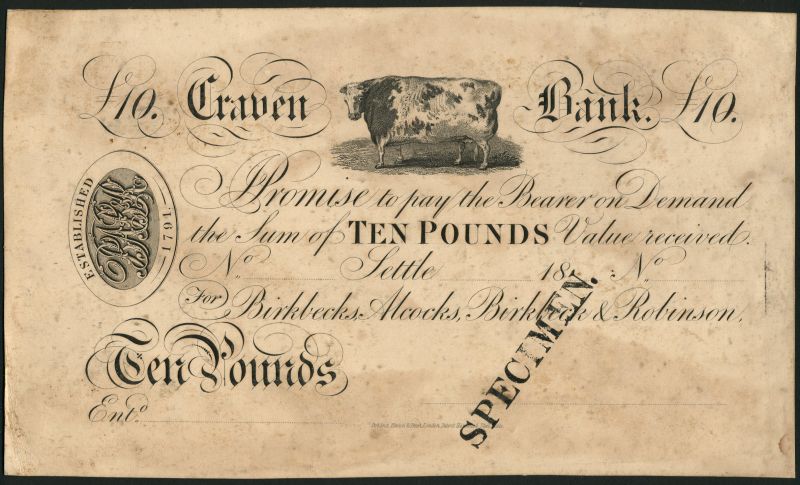 £10. Craven Bank. £10.
ESTABLISHED 1791.
CRAVEN BANK
I Promise to pay the Bearer on Demand
the Sum of TEN POUNDS Value received.
No. Settle 18 No.
For Birkbecks, Alcocks, Birkbeck & Robinson,
Ten Pounds
Entd.
SPECIMEN.